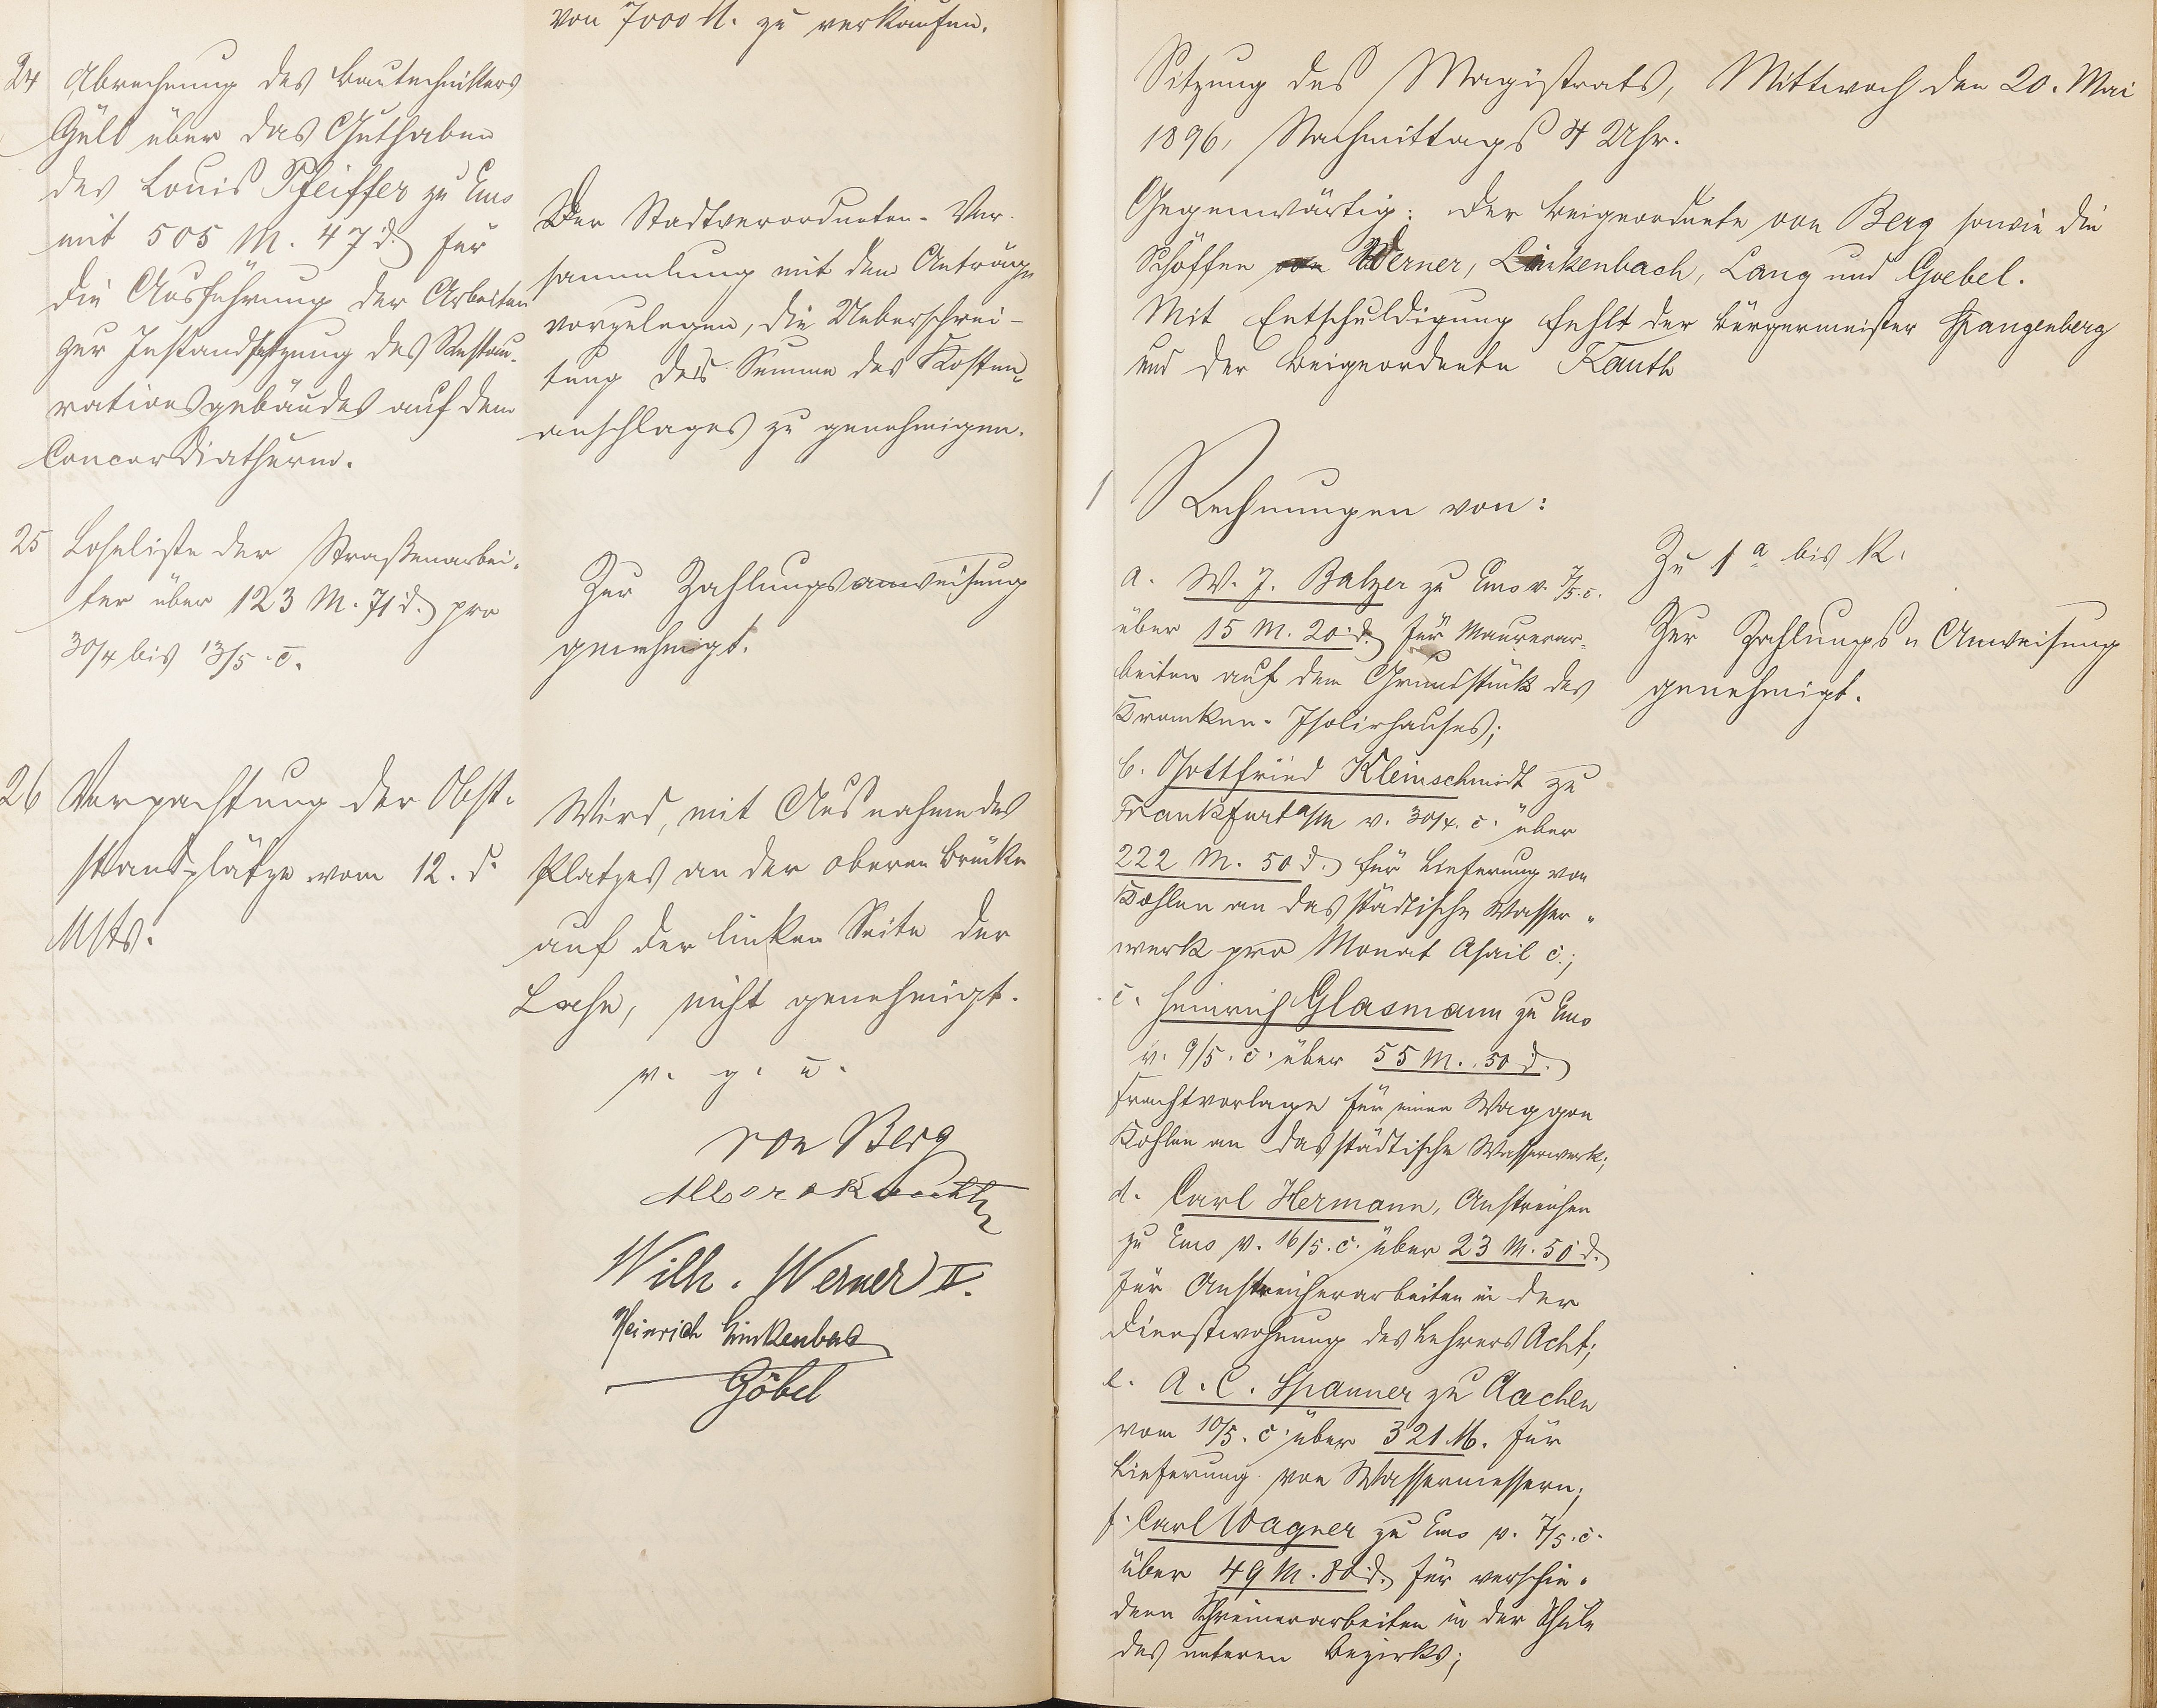 von 7000 M. zu verkaufen.
24 Abrechnung des Bautechnikers
Güll über das Guthaben
des Louis Pfeiffer zu Ems
mit 505 M. 47 d. für
die Ausführung der Arbeiten
zur Instandsetzung des Restau-
rationsgebäudes auf dem
Concordiathurm.
Der Stadtverordneten-Ver-
sammlung mit dem Antrage
vorzulegen, die Ueberschrei-
tung der Summe des Kosten-
anschlages zu genehmigen.
25 Lohnliste der Straßenarbei-
ter über 123 M. 71 d. pro
30/4 bis 13/5. c.
Zur Zahlungsanweisung
genehmigt.
26 Verpachtung der Obst-
standplätze vom 12. d.
Mts.
Wird, mit Ausnahme des
Platzes an der oberen Brücke
auf der linken Seite der
Lahn, nicht genehmigt.
v. g. u.
von Berg
Albert Kauth
Wilh. Werner II.
Heinrich Linkenbach
Göbel
Sitzung des Magistrats, Mittwoch den 20. Mai
1896, Nachmittags 4 Uhr.
Gegenwärtig: der Beigeordnete von Berg sowie die
Schöffen von Werner, Linkenbach, Lang und Goebel.
Mit Entschuldigung fehlt der Bürgermeister Spangenberg
und der Beigeordnete Kauth
1 Rechnungen von:
a. W. J. Balzer zu Ems v. 7/5. c.
über 15 M. 20 d. für Maurerar-
beiten auf dem Grundstück des
Kranken-Isolirhauses;
b. Gottfried Kleinschmidt zu
Frankfurt a/M v. 30/4. c. über
222 M. 50 d. für Lieferung von
Kohlen an das städtische Wasser-
werk pro Monat April c.;
c. Heinrich Glasmann zu Ems
v. 9/5. c. über 55 M. 50 d.
Frachtvorlage für einen Waggon
Kohlen an das städtische Wasserwerk;
d. Carl Hermann, Anstreicher
zu Ems v. 16/5. c. über 23 M. 50 d.
für Anstreicherarbeiten in der
Dienstwohnung des Lehrers Acht;
e. A. C. Spanner zu Aachen
vom 10/5. c. über 321 M. für
Lieferung von Wassermessern;
f. Carl Wagner zu Ems v. 7/5. c.
über 49 M. 80 d. für verschie-
dene Schreinerarbeiten in der Schule
des unteren Bezirks;
Zu 1 a bis k.
Zur Zahlungs-Anweisung
genehmigt.